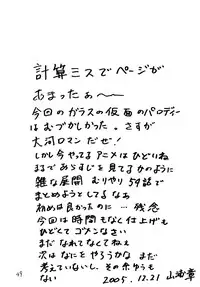 計算ミスでページが
あまったぁ〜
今回のガラスの仮面のパロディー
はむづかしかった。さすが
大河ロマンだぜ!
しかし今やってるアニメはひどいね
まるであらすじを見てるかのように
雑な展開 むりやり54話で
まとめようとしてるなぁ
初めは良かったのに… 残念
今回は時間もなく仕上げも
ひどくてゴメンなさい
まだなれてなくてねぇ
次はなにをやろうかな まだ
考えていないし、その余ゆうも
ない 2005.12.21
49